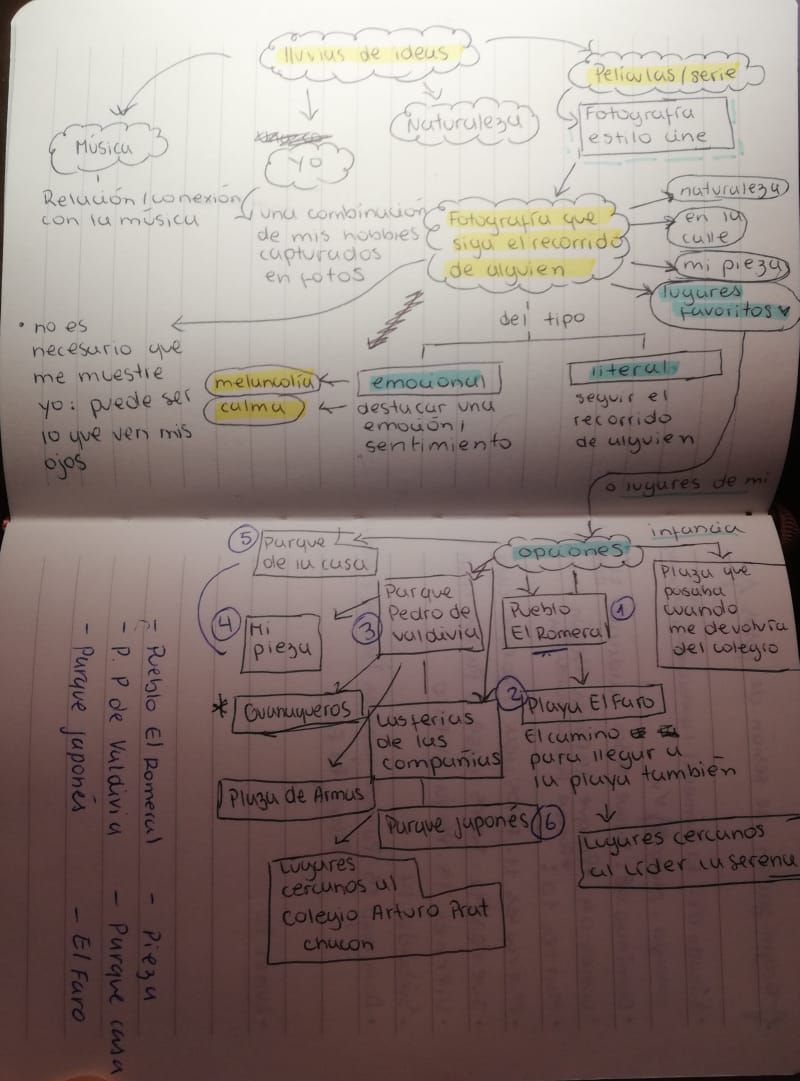 lluvias de ideas
Películas/serie
Fotografía
estilo cine
Naturaleza
Música
YO
Relación/conexión
con la música
una combinación
de mis hobbies
capturados
en fotos
Fotografía que
siga el recorrido
de alguien
naturaleza
en la
calle
mi pieza
lugares
favoritos
del tipo
• no es
necesario que
me muestre
yo: puede ser
lo que ven mis
ojos
melancolía
calma
emocional
destacar una
emoción/
sentimiento
literal
seguir el
recorrido
de alguien
o lugares de mi
infancia
opciones
5
Parque
de la casa
Parque
Pedro de
Valdivia
3
Pueblo
El Romeral
1
Plaza que
pasaba
cuando
me devolvía
del colegio
4
Mi
pieza
* Guanaqueros
Las ferias
de las
compañías
2
Playa El Faro
El camino
para llegar a
la playa también
Plaza de Armas
Parque japonés
6
Lugares cercanos
al Líder La Serena
Lugares
cercanos al
colegio Arturo Prat
chacon
- Pueblo El Romeral - Pieza
- P. P de Valdivia - Parque casa
- Parque japonés - El Faro